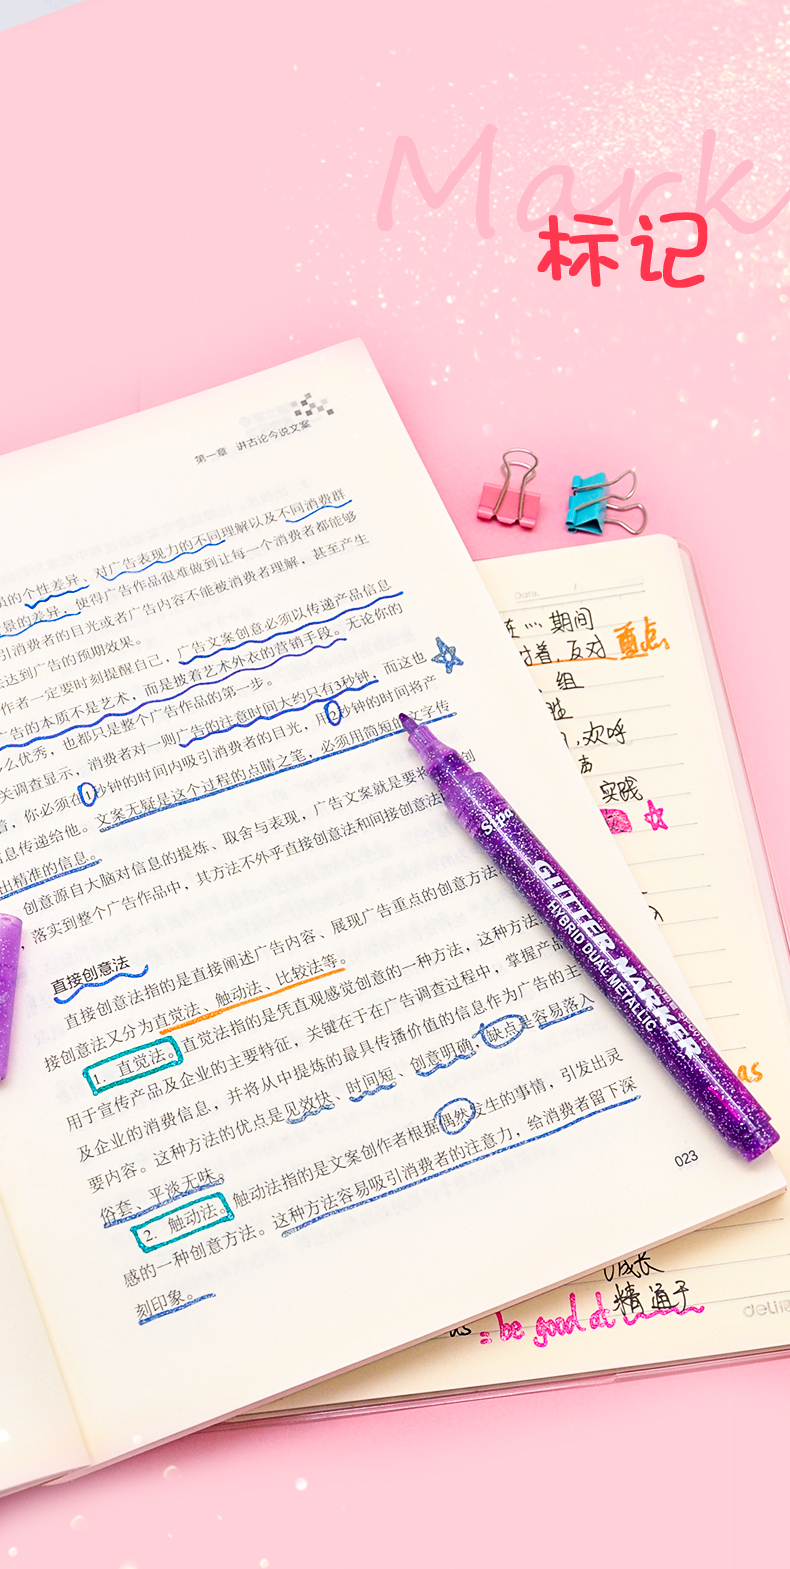 Mark
标记
第一章 讲古论今说文案
员的个性差异、对广告表现力的不同理解以及不同消费群
景的差异，使得广告作品很难做到让每一个消费者都能够
引消费者的目光或者广告内容不能被消费者理解，甚至产生
法达到广告的预期效果。
作者一定要时刻提醒自己，广告文案创意必须以传递产品信息
广告的本质不是艺术，而是披着艺术外衣的营销手段。无论你的
么优秀，也都只是整个广告作品的第一步。
关调查显示，消费者对一则广告的注意时间大约只有3秒钟，而这也
着，你必须在1秒钟的时间内吸引消费者的目光，用2秒钟的时间将产
信息传递给他。文案无疑是这个过程的点睛之笔，必须用简短的文字传
出精准的信息。
创意源自大脑对信息的提炼、取舍与表现，广告文案就是要将 创
，落实到整个广告作品中，其方法不外乎直接创意法和间接创意法
直接创意法
直接创意法指的是直接阐述广告内容、展现广告重点的创意方法
接创意法又分为直觉法、触动法、比较法等。
1. 直觉法。直觉法指的是凭直观感觉创意的一种方法，这种方法
用于宣传产品及企业的主要特征，关键在于在广告调查过程中，掌握产品
及企业的消费信息，并将从中提炼的最具传播价值的信息作为广告的主
要内容。这种方法的优点是见效快、时间短、创意明确，缺点是容易落入
俗套、平淡无味。
2. 触动法。触动法指的是文案创作者根据偶然发生的事情，引发出灵
感的一种创意方法。这种方法容易吸引消费者的注意力，给消费者留下深
刻印象。
023
Sipa
GLITTER MARKER
HYBRID DUAL METALLIC
Date. /
… 期间
着，反对 重点。
、组
胜
，欢呼
声
实践
as
成长
as = be good at 精通于
deli